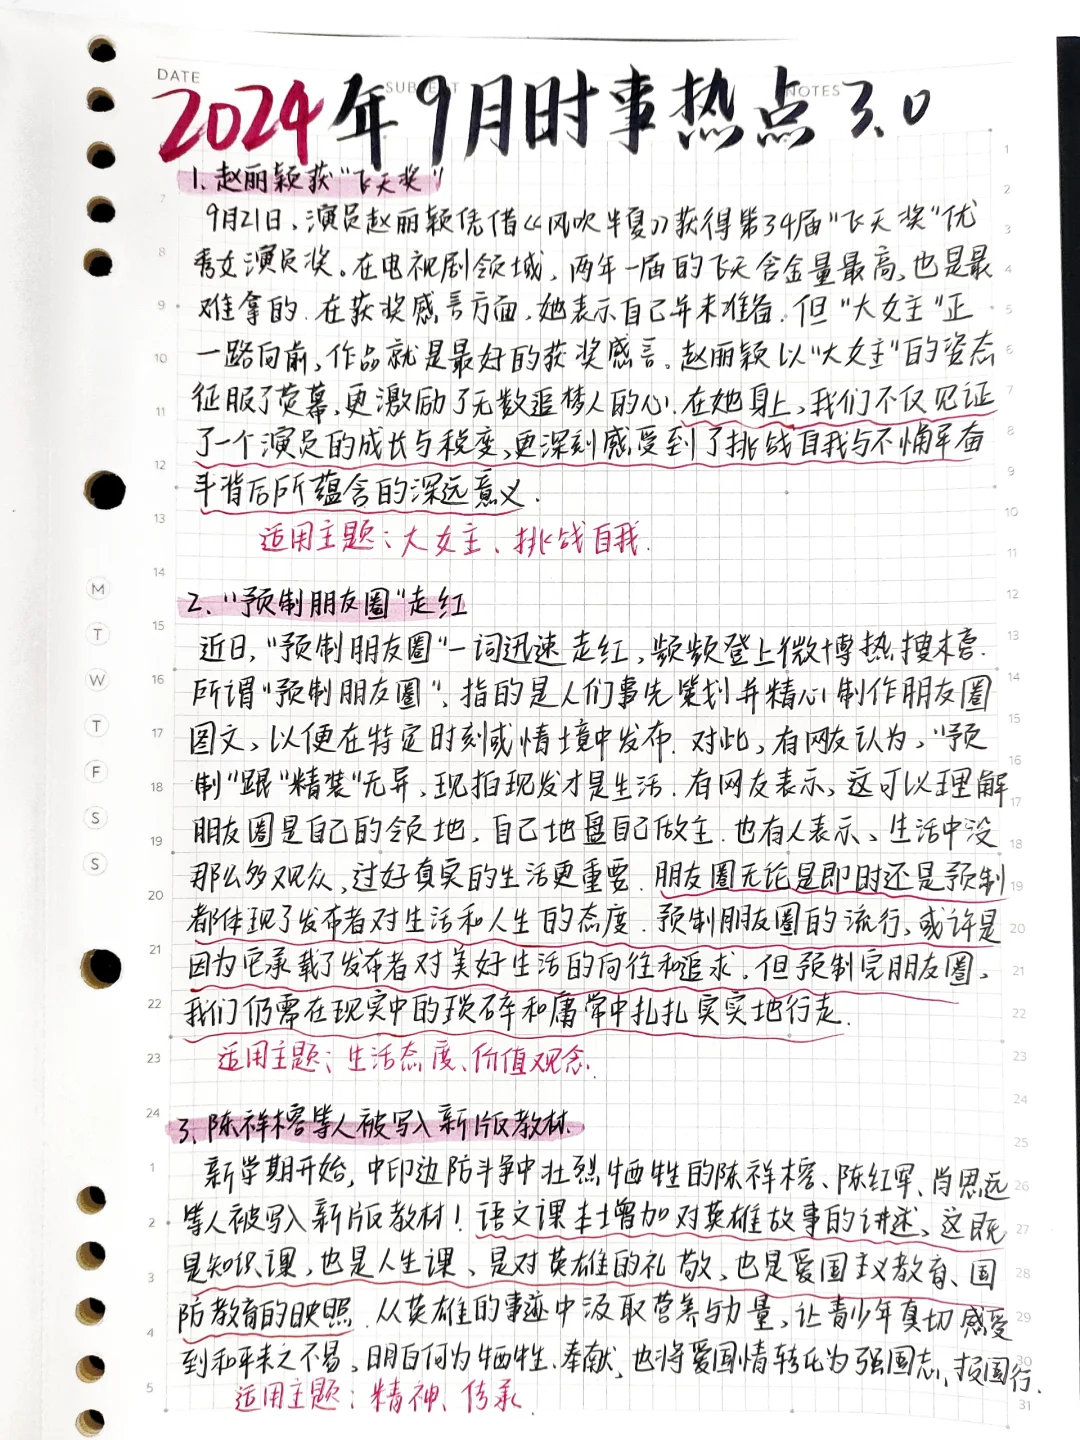 DATE
SUBJECT
NOTES
2024年9月时事热点3.0
1.赵丽颖获"飞天奖"
9月21日,演员赵丽颖凭借《风吹半夏》获得第34届"飞天奖"优
秀女演员奖。在电视剧领域,两年一届的飞天含金量最高,也是最
难拿的.在获奖感言方面,她表示自己并未准备.但"大女主"正
一路向前,作品就是最好的获奖感言。赵丽颖以"大女主"的姿态
征服了荧幕,更激励了无数追梦人的心.在她身上,我们不仅见证
了一个演员的成长与蜕变,更深刻感受到了挑战自我与不懈奋
斗背后所蕴含的深远意义.
适用主题:大女主、挑战自我.
2、"预制朋友圈"走红
近日,"预制朋友圈"一词迅速走红,频频登上微博热搜榜.
所谓"预制朋友圈",指的是人们事先策划并精心制作朋友圈
图文,以便在特定时刻或情境中发布.对此,有网友认为,"预
制"跟"精装"无异,现拍现发才是生活.有网友表示,这可以理解
朋友圈是自己的领地,自己地盘自己做主.也有人表示,生活中没
那么多观众,过好真实的生活更重要.朋友圈无论是即时还是预制
都体现了发布者对生活和人生的态度.预制朋友圈的流行,或许是
因为它承载了发布者对美好生活的向往和追求,但预制完朋友圈,
我们仍需在现实中的琐碎和庸常中扎扎实实地行走.
适用主题:生活态度、价值观念.
3、陈祥榕等人被写入新版教材.
新学期开始,中印边防斗争中壮烈牺牲的陈祥榕、陈红军、肖思远
等人被写入新版教材!语文课本增加对英雄故事的讲述,这既
是知识课,也是人生课、是对英雄的礼敬,也是爱国主义教育、国
防教育的映照.从英雄的事迹中汲取营养与力量,让青少年真切感受
到和平来之不易,明白何为牺牲、奉献,也将爱国情转化为强国志,报国行.
适用主题:精神、传承.
M
T
W
T
F
S
S